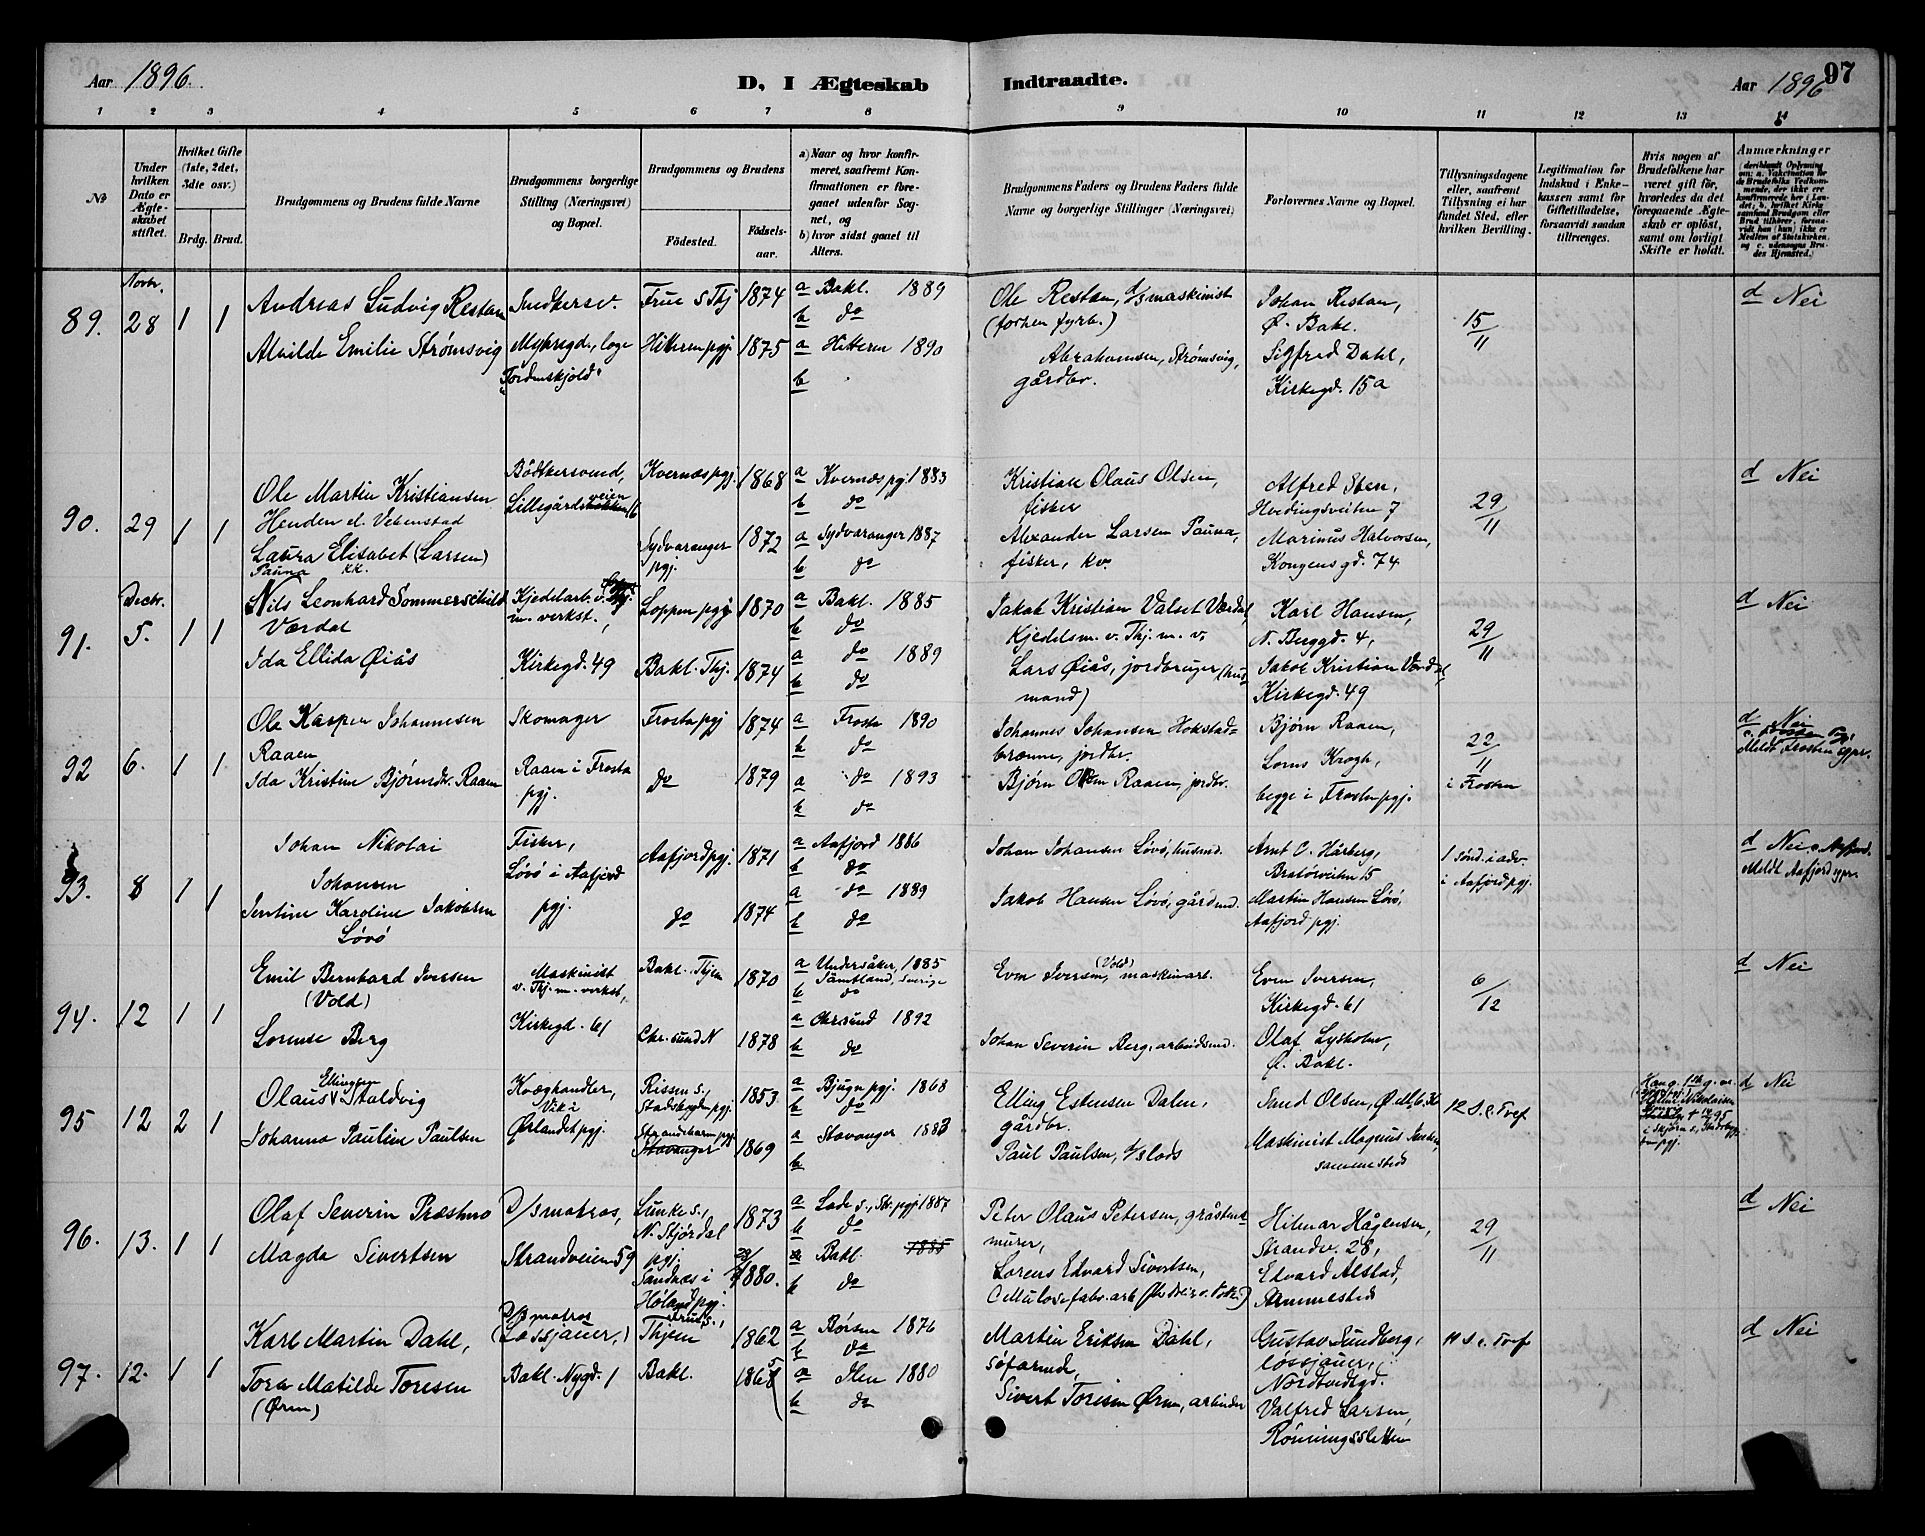 97
Aar 1896.
D, I Ægteskab
Indtraadte.
Aar 1896
1 2 3 4 5 6 7 8 9 10 11 12 13 14
№
Under hvilken Dato er Ægteskabet stiftet.
Hvilket Gifte (1ste, 2det, 3die osv.)
Brdg. Brud.
Brudgommens og Brudens fulde Navne
Brudgommens borgerlige Stilling (Næringsvei) og Bopæl.
Brudgommens og Brudens
Fødested.
Fødselsaar.
a) Naar og hvor konfirmeret, saafremt Konfirmationen er foregaaet udenfor Sognet, og
b) hvor sidst gaaet til Alters.
Brudgommens Faders og Brudens Faders fulde Navne og borgerlige Stillinger (Næringsvei)
Forlovernes Navne og Bopæl.
Tillysningsdagene eller, saafremt Tillysning ei har fundet Sted, efter hvilken Bevilling.
Legitimation for Indskud i Enkekassen samt for Giftetilladelse, forsaavidt saadan tiltrænges.
Hvis nogen af Brudefolkene har været gift før, hvorledes da det foregaaende Ægteskab er opløst, samt om lovligt Skifte er holdt.
Anmærkninger
Novbr.
89. 28 1 1
Andreas Ludvig Restan Snedkersv. Frue s Thj 1874 a Bakl. 1889 b do
Ole Restan, d/s maskinist (forhen fyrb.)
Johan Restan, Ø. Bakl.
15/11
d Nei
Alvilde Emilie Strømsvig Hitteren pgj. 1875 a Hitteren 1890 b
Tordenskjold
Abrahamsen, Strømsvig, gårdbr.
Sigfred Dahl, Kirkegd. 15 a
90. 29 1 1
Ole Martin Kristiansen Henden el. Vebenstad
Bødkersvend, Lillegårdsveien 16
Kvernæs pgj. 1868 a Kvernæs pgj. 1883 b do
Kristian Olaus Olsen, fisker
Alfred Sten, Hvedingsveiten 7
29/11
d Nei
Laura Elisabet (Larsen) Pauna
Sydvaranger pgj. 1872 a Sydvaranger 1887 b do
Alexander Larsen Pauna, fisker, kv.
Marinus Halvorsen, Kongens gd. 74
Decbr.
91. 5. 1 1
Nils Leonhard Sommerschild Værdal
Kjedelarb. v. m. verkst.,
Loppen pgj 1870 a Bakl. 1885 b do
Jakob Kristian Valset Værdal, Kjedelsm. v. Thj. m. v.
Karl Hansen, N. Berggd. 4,
29/11
d Nei
Ida Ellida Øiås Kirkegd. 49 Bakl. Thj. 1874 a do 1889 b do
Lars Øiås, jordbruger (husmand)
Jakob Kristian Værdal, Kirkegd. 49
92 6. 1 1
Ole Kasper Johannesen Raaen
Skomager
Frosta pgj 1874 a Frosta 1890 b do
Johannes Johansen Hokstadbrænne, jordbr.
Bjørn Raaen,
22/11 i Frosten
d Nei
Meldt Frosten sgpr.
Ida Kristine Bjørnsdr. Raaen Raaen i Frosta pgj. do 1879 a do 1893 b do
Bjørn Olsen Raaen, jordbr.
Lorns Krogh, begge i Frosten pgj.
93. 8 1 1
Johan Nikolai Johansen
Fisker, Løvø i Aafjord pgj.
Aafjord pgj. 1871 a Aafjord 1886 b do
Johan Johansen Løvø, husmd.
Arnt O. Hårberg, Bratørveiten 15
1 sønd. i adv. i Aafjord pgj.
d Nei c Aafjord.
Meldt Aafjord sgpr.
Jentine Karoline Jakobsen Løvø do 1874 a do 1889 b do
Jakob Hansen Løvø, gårdmd.
Martin Hansen Løvø, Aafjord pgj.
94. 12 1 1
Emil Bernhard Iversen (Vold)
Maskinist v. Thj. m. verkst.,
Bakl. Thjem 1870 a Undersåker, 1885 Jämtland, Sverige b do
Even Iversen, (Vold) maskinarb.
Even Iversen, Kirkegd. 61
6/12
d Nei
Lorense Berg Kirkegd. 61 Chr.sund N 1878 a Chr.sund 1892 b do
Johan Severin Berg, arbeidsmd.
Olaf Lysholm, Ø. Bakl.
95 12 2 1
Olaus Ellingsen Staldvig
Kvæghandler, Vik i Ørlandet pgj.
Rissen s., Stadsbygden pgj. 1853 a Bjugn pgj. 1868 b do
Elling Estensen Dalen, gårdbr.
Sund Olsen,
12 S. e. Tref.
d Nei
Johanna Pauline Paulsen Strandebarm pgj. Stavanger 1869 a Stavanger 1883 b
Paul Paulsen, d/s lods
Maskinist Magnus samme sted
96. 13. 1 1
Olaf Severin Præstmo
D/s matros, Strandveien 59
Lånke s., N. Stjørdal pgj. 1873 a Lade s., Str. pgj 1887 b do
Peter Olaus Petersen, gråstenmurer,
Hilmar Hågensen, Strandv. 28,
29/11
d Nei
Magda Sivertsen Sandnæs i Høland pgj. 1880. a Bakl. 1885 b do
Lorens Edvard Sivertsen, Cellulosefabr. arb
Edvard Alstad, Sammested
97. 12. 1 1
Karl Martin Dahl,
D/s matros (Løssjauer,) Bakl. Nygd. 1
Frue s., Thjem 1862 a Børsen 1876 b do
Martin Eriksen Dahl, søfarende,
Gustav Lundberg, løssjauer, Nordtvedtgd.
11 S. e. Tref
d Nei
Tora Matilde Toresen (Ørm) Bakl. 1865 a Ilen 1880 b do
Sivert Toresen Ørm, arbeider
Valfred Larsen, Rønningssletten